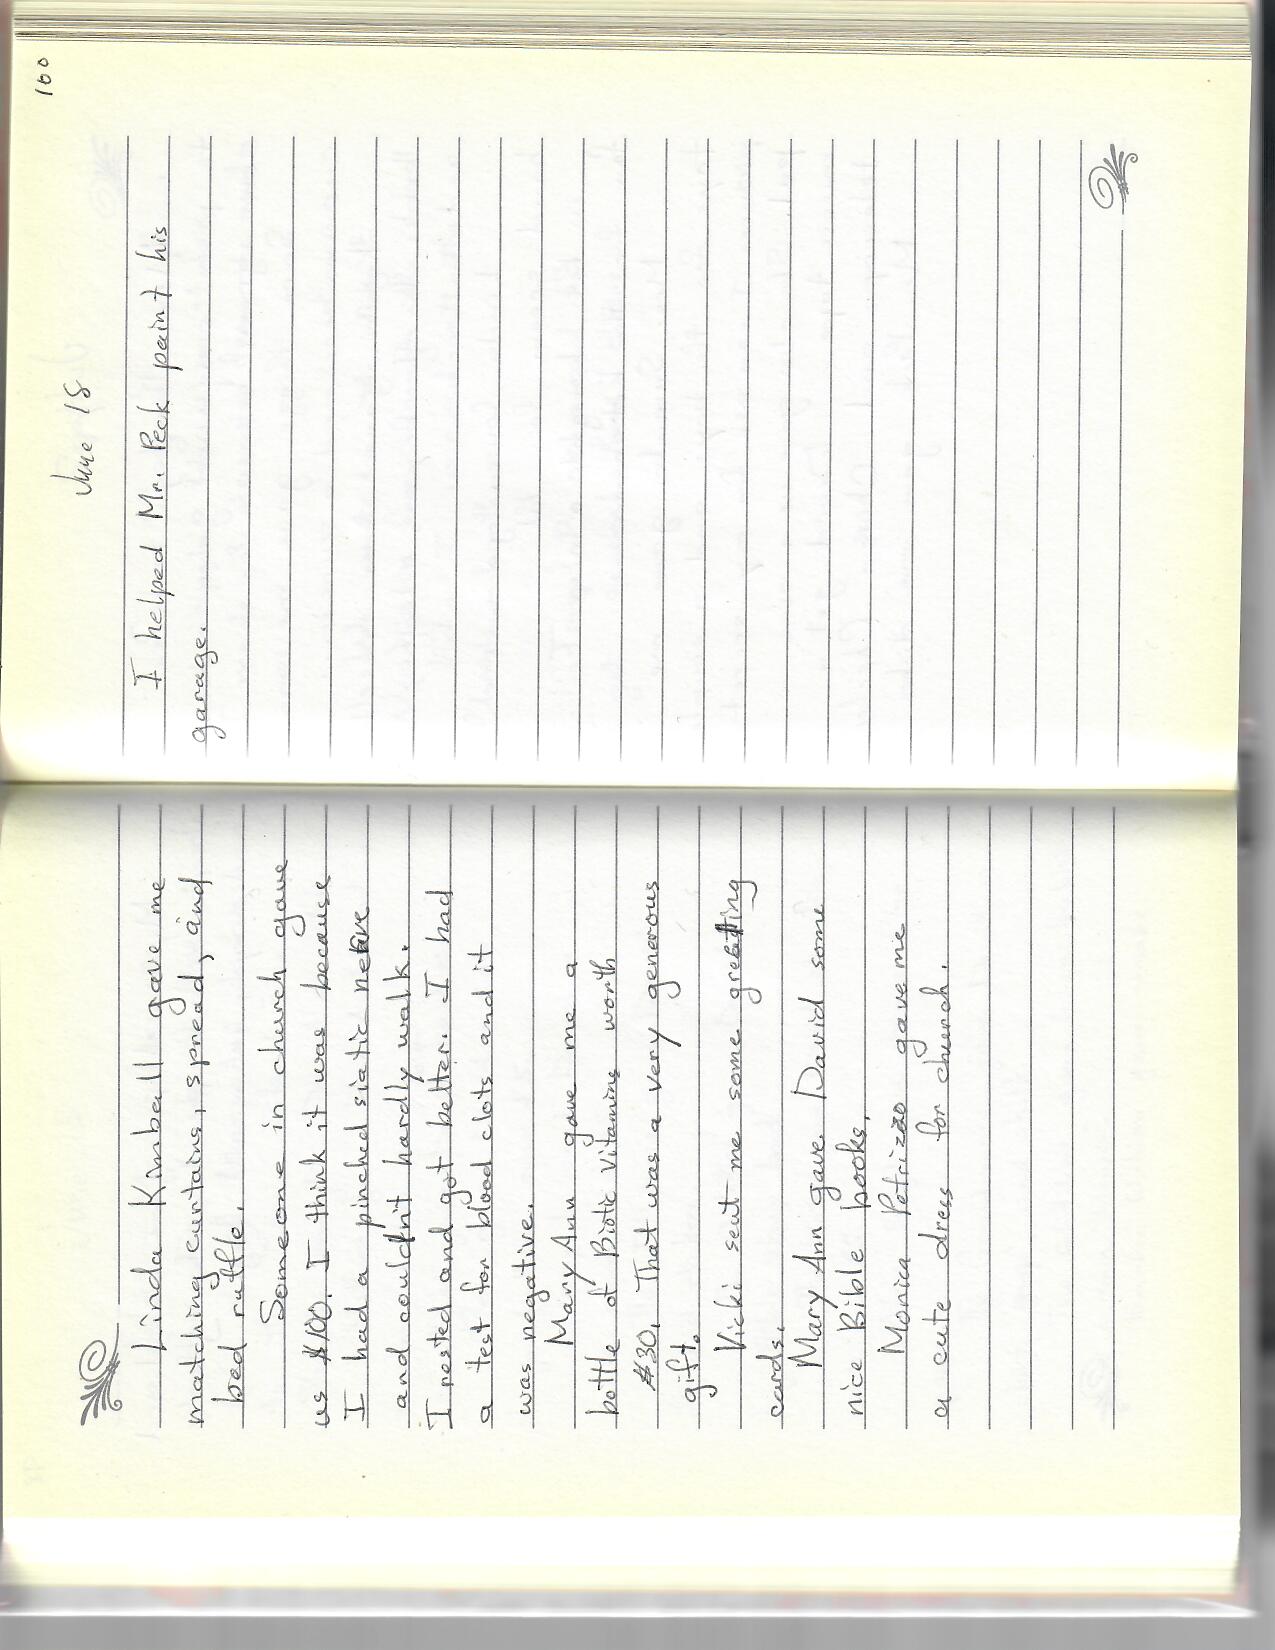 Linda Kimball gave me
matching curtains, spread, and
bed ruffle.
Someone in church gave
us $100. I think it was because
I had a pinched siatic nerve
and couldn't hardly walk.
I rested and got better. I had
a test for blood clots and it
was negative.
Mary Ann gave me a
bottle of Biotic Vitamins worth
$30. That was a very generous
gift.
Vicki sent me some greeting
cards.
Mary Ann gave David some
nice Bible books.
Monica Petrizzo gave me
a cute dress for church.
100
June 18
I helped Mr. Peck paint his
garage.